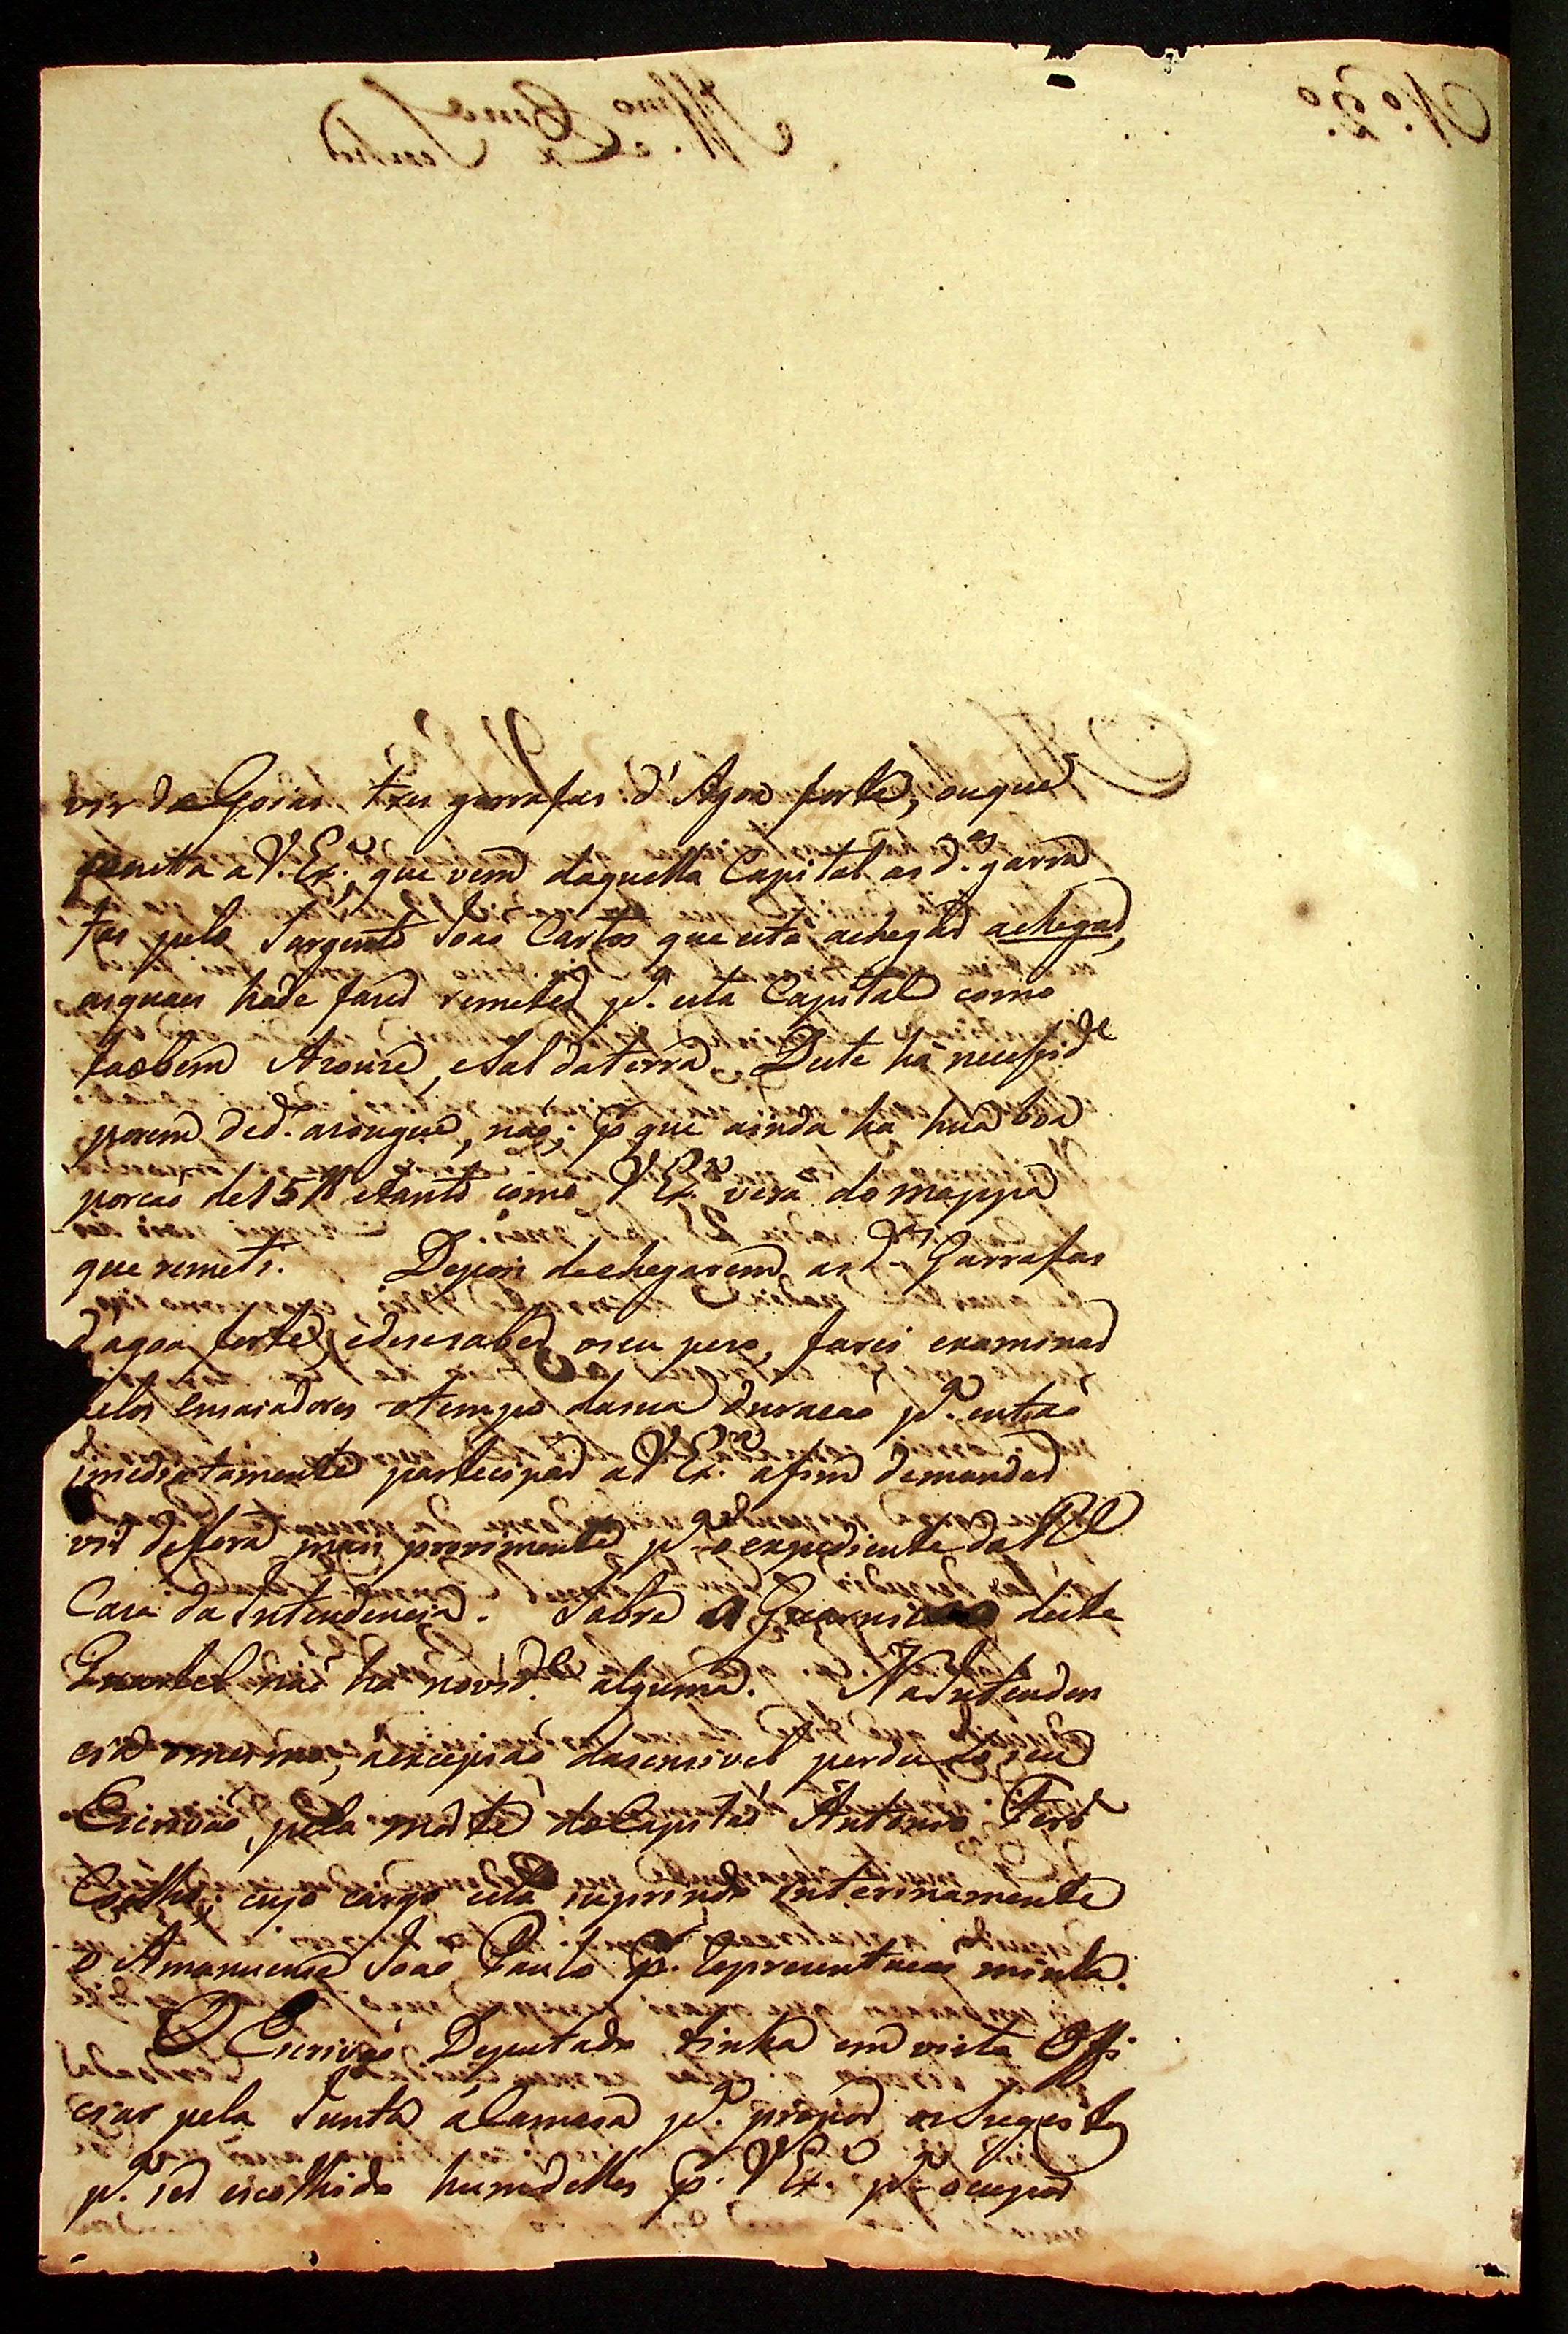 vir de Goias tres garrafas d'Agoa forte, ouque
a V. Ex.ª, que vem daquella Capital as d.as garra
fas pelo Sargento Joao Carlos que está achegar achegar,
asquaes hade fazer remeter p.ª esta Capital como
taobem Azougue, eSal daterra. Deste há necessid.e
porem ded. asougue, não; p. que ainda ha hũa boa
porcaõ de 15 etanto como V. Ex.ª verá do mappa
que remeti. Depois dechegarem as d.as Garrafas
d'agoa forte, edesesaber oseu peso, farei examinar
pelos Ensaiadores otempo dasua duracaõ p.ª entaõ
imediatamente partecipar aV. Ex.ª afim demandar
vir defora mais p.ª oexpediente da R.l
Casa da Intendencia. Sobre a Guarnicaõ deste
Quartel naõ ha novid.e alguma. NaIntenden
cia omesmo, aexcepsaõ dasensivel perda do seu
Escrivaõ, pela morte do Capitaõ Antonio Ferr.ª
Coelho; cujo cargo está suprindo interinamente
o Amanuense Joao Paulo p. representacaõ minha.
O Escrivaõ Deputado tinha em vista Offi
ciar pela Junta áCamara p.ª propor osSugeitos
p.ª ser escolhido humdelles p. V. Ex.ª p.ª ocupar